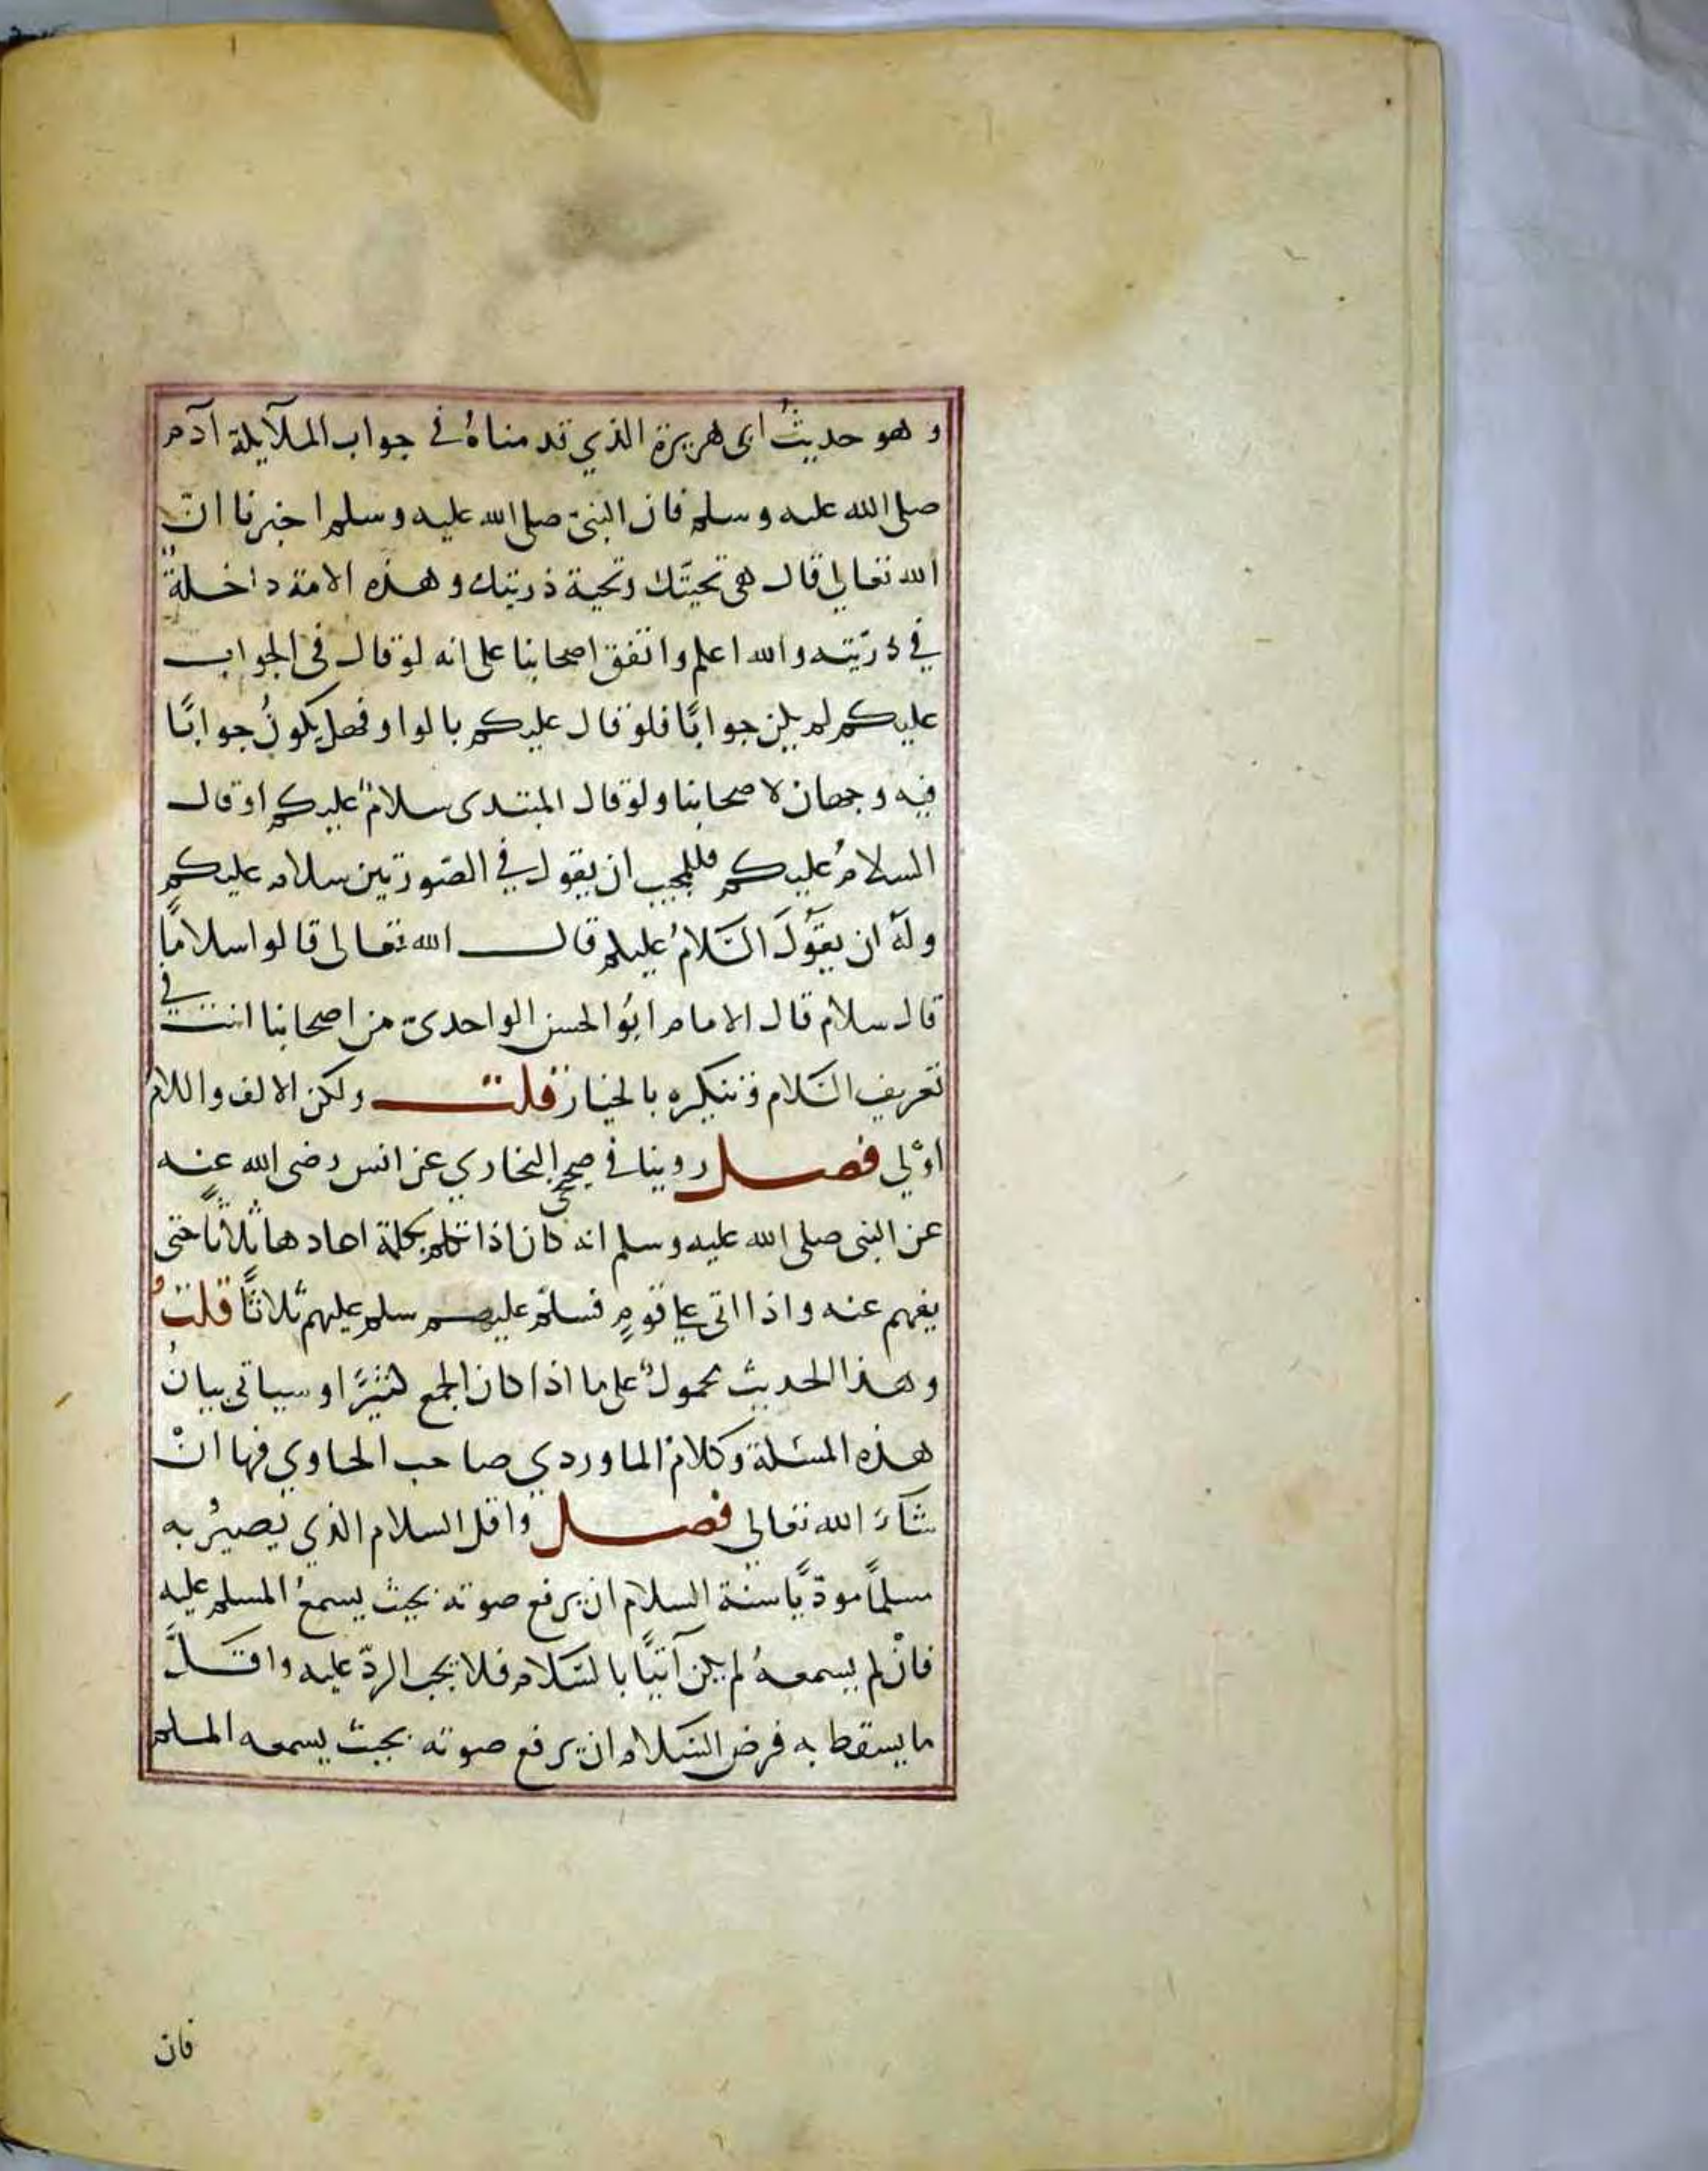 و هو حديثُ ابى هريرة الذي قدمناهُ في جواب الملآيكة آدم
صلى الله عليه وسلم فان النبيّ صلى الله عليه وسلم اخبرنا انّ
الله تعالى قال هى تحيتّك وتحية ذريتك وهذه الامة داخلةٌ
في ذرّيته والله اعلم واتفق اصحابنا على انه لو قال فى الجواب
عليكم لم يكن جوابًا فلو قال عليكم بالواو فهل يكونُ جوابًا
فيه وجهان لاصحابنا ولو قال المبتدى سلامٌ عليكم او قال
السلامُ عليكم فللمجيب ان يقول في الصّورتين سلام عليكم
ولَهُ ان يقَوُلَ السَّلامُ عليكم قال الله تعالى قالوا سلامًا
قال سلام قال الامام ابوُ الحسن الواحدىّ من اصحابنا انت في
تعريف السَّلام وتنكيره بالخيار قلت ولكن الالف واللامُ
اوْلي فصل روينا في صحيح البخاري عن انس رضى الله عنه
عن النبى صلى الله عليه وسلم انه كان اذا تكلم بكلمة اعادها ثُلاثًا حتى
يفهم عنه واذا اتى على قومٍ فسلّم عليهم سلم عليهم ثلاثًا قلتُ
وهذا الحديث محمولٌ على ما اذا كان الجمع كثيرًا وسياتى بيانُ
هذه المسئلة وكلامُ الماوردي صاحب الحاوي فيها انْ
شَآءَ الله تعالي فصل واقل السلام الذي يَصيرُ به
مسلمًا مودّيًا سنة السلام ان يرفع صوته بحيث يسمعُ المسلم عليه
فانْ لم يسمعهُ لم يكن آتيًا بالسَّلام فلا يجب الردّ عليه واقلَّ
ما يسقط به فرض السَّلام ان يرفع صوته بحيث يسمعه المسلم
فان